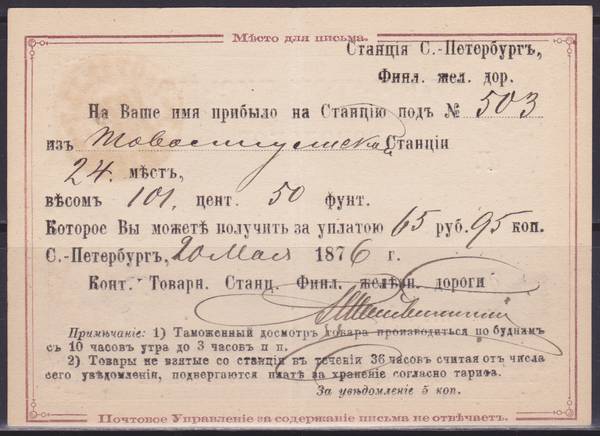 Мѣсто для письма.
Станція С.-Петербургъ,
Финл. жел. дор.
На Ваше имя прибыло на Станцію подъ № 503
изъ Станціи
24. мѣстъ,
вѣсомъ 101, цент. 50 фунт.
Которое Вы можетѣ получить за уплатою 65 руб. 95 коп.
С.-Петербургъ, 20 Мая 1876 г.
Конт. Товарн. Станц. Финл. желѣзн. дороги
Примѣчаніе: 1) Таможенный досмотръ товара производиться по буднимъ
съ 10 часовъ утра до 3 часовъ п п.
2) Товары не взятые со станціи въ теченіи 36 часовъ считая отъ числа
сего увѣдомленія, подвергаются платѣ за храненіе согласно тарифа.
За увѣдомленіе 5 коп.
Почтовое Управленіе за содержаніе письма не отвѣчаетъ.